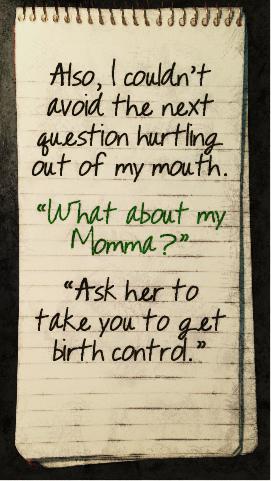 Also, I couldn't
avoid the next
question hurtling
out of my mouth.
"What about my
Momma?"
"Ask her to
take you to get
birth control."